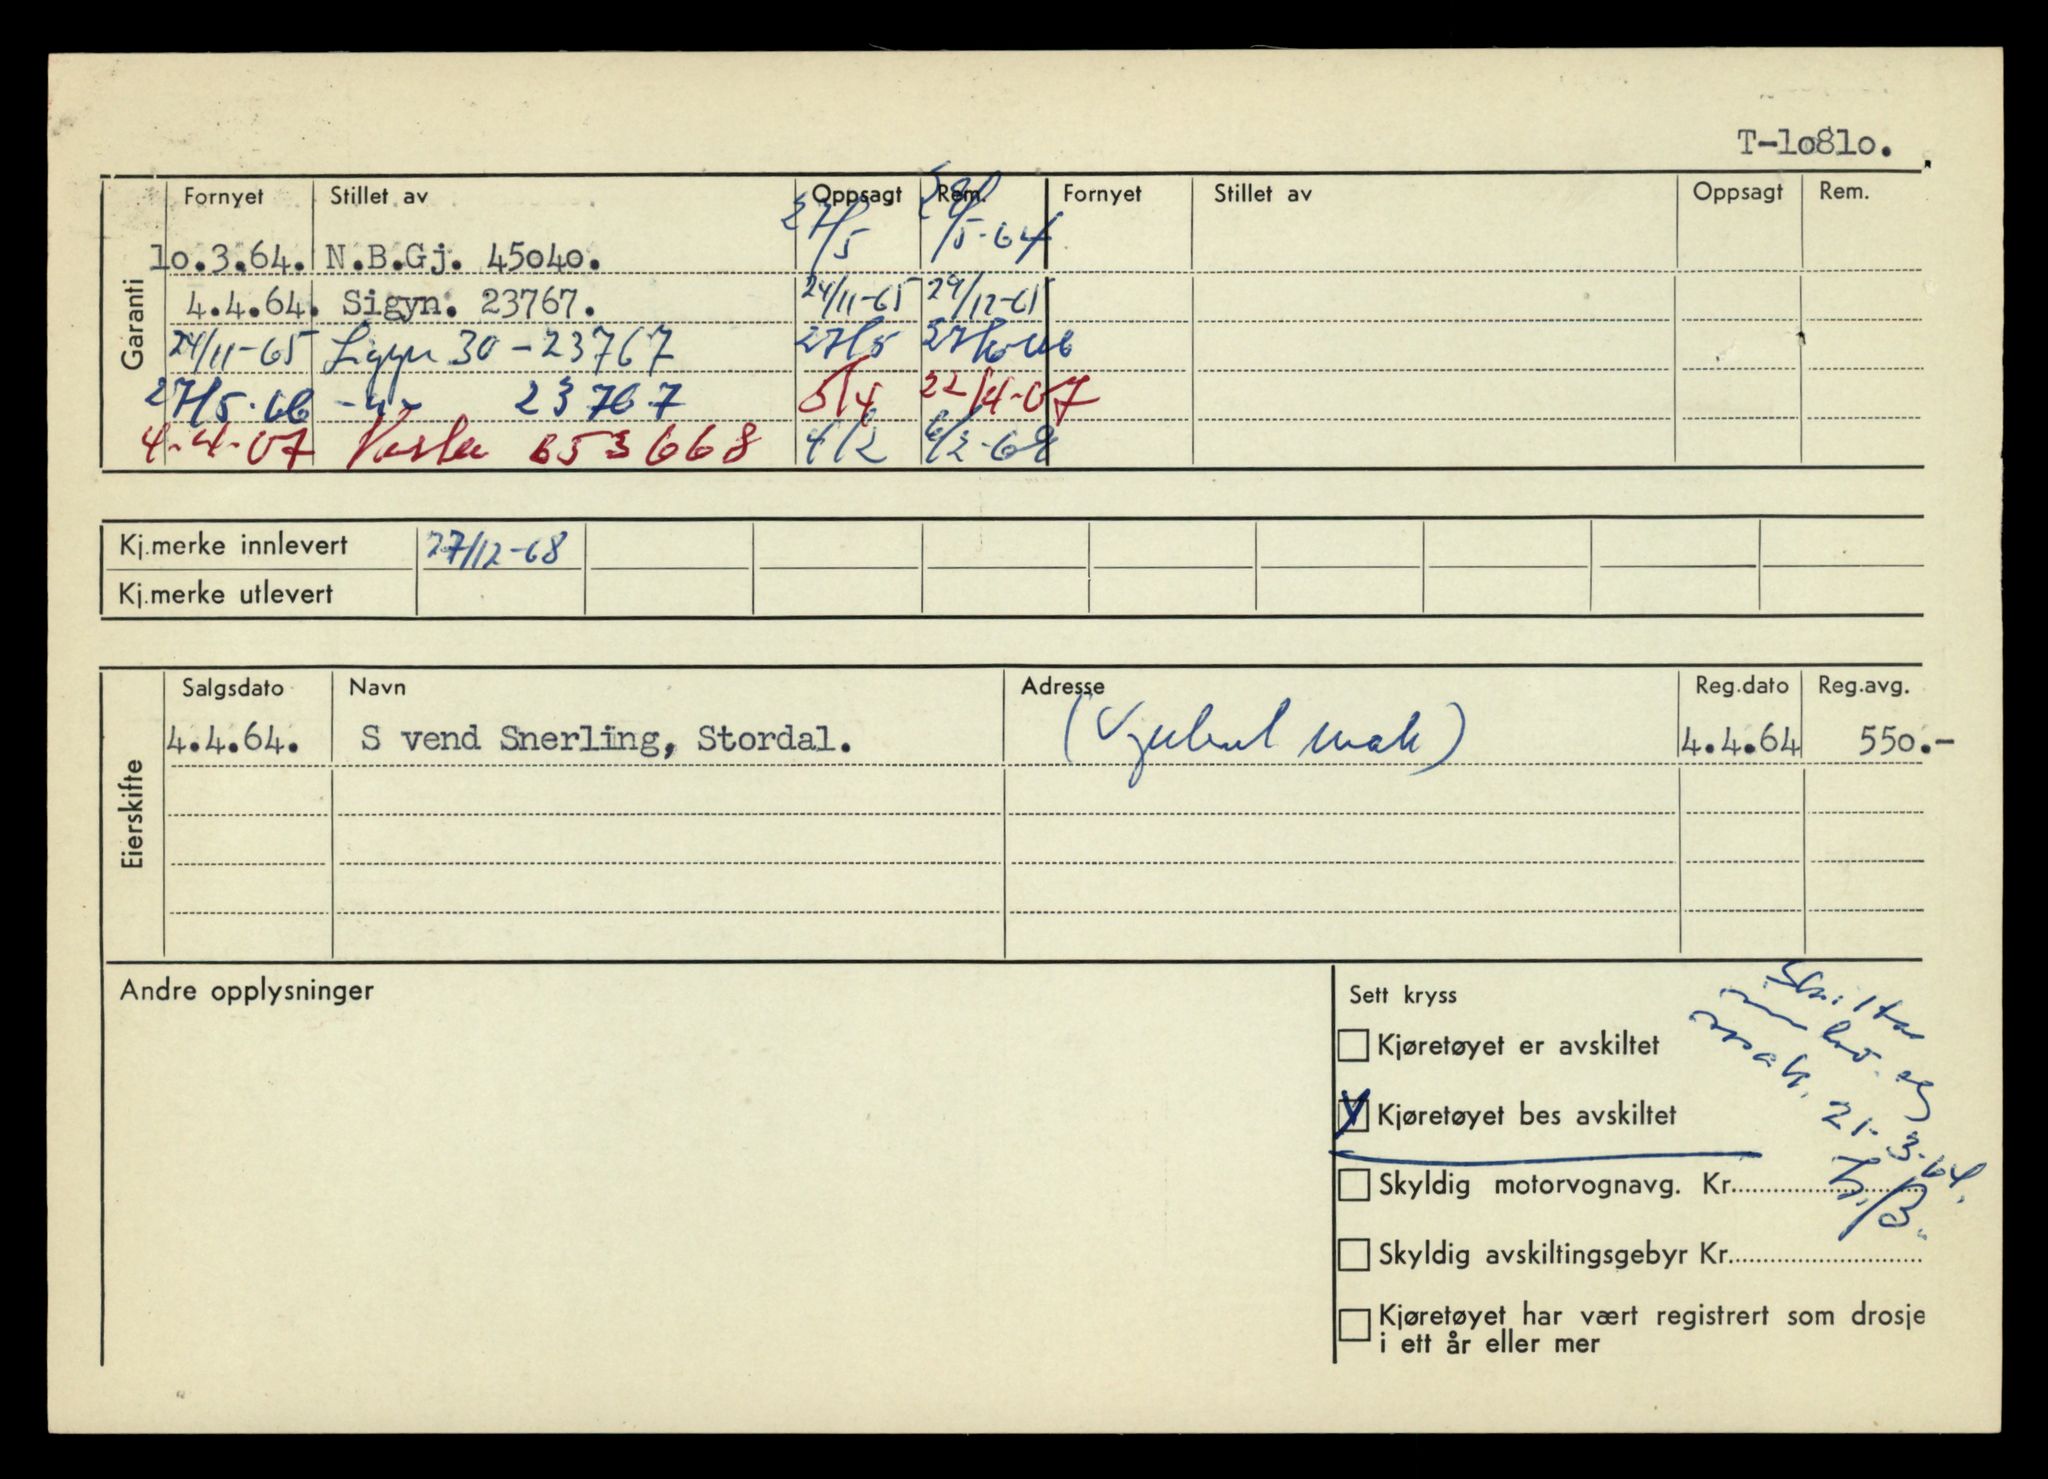 T-10810.
Garanti
Fornyet Stillet av Oppsagt Rem. Fornyet Stillet av Oppsagt Rem.
10.3.64. N.B.Gj. 45040. 27/5 /5-64
4.4.64. Sigyn. 23767. 24/11-65 29/12-65
24/11-65 Sigyn 30-23767 27/5 27/6-66
27/5-66 -"- 23767 5/4 22/4-67
4-4-67 Vesta 653668 4/2 6/2-68
Kj.merke innlevert 27/12-68
Kj.merke utlevert
Eierskifte
Salgsdato Navn Adresse Reg.dato Reg.avg.
4.4.64. S vend Snerling, Stordal. 4.4.64 550.-
Andre opplysninger
Sett kryss
Kjøretøyet er avskiltet
Kjøretøyet bes avskiltet
Skyldig motorvognavg. Kr.
Skyldig avskiltingsgebyr Kr.
Kjøretøyet har vært registrert som drosje
i ett år eller mer
21-3-64.